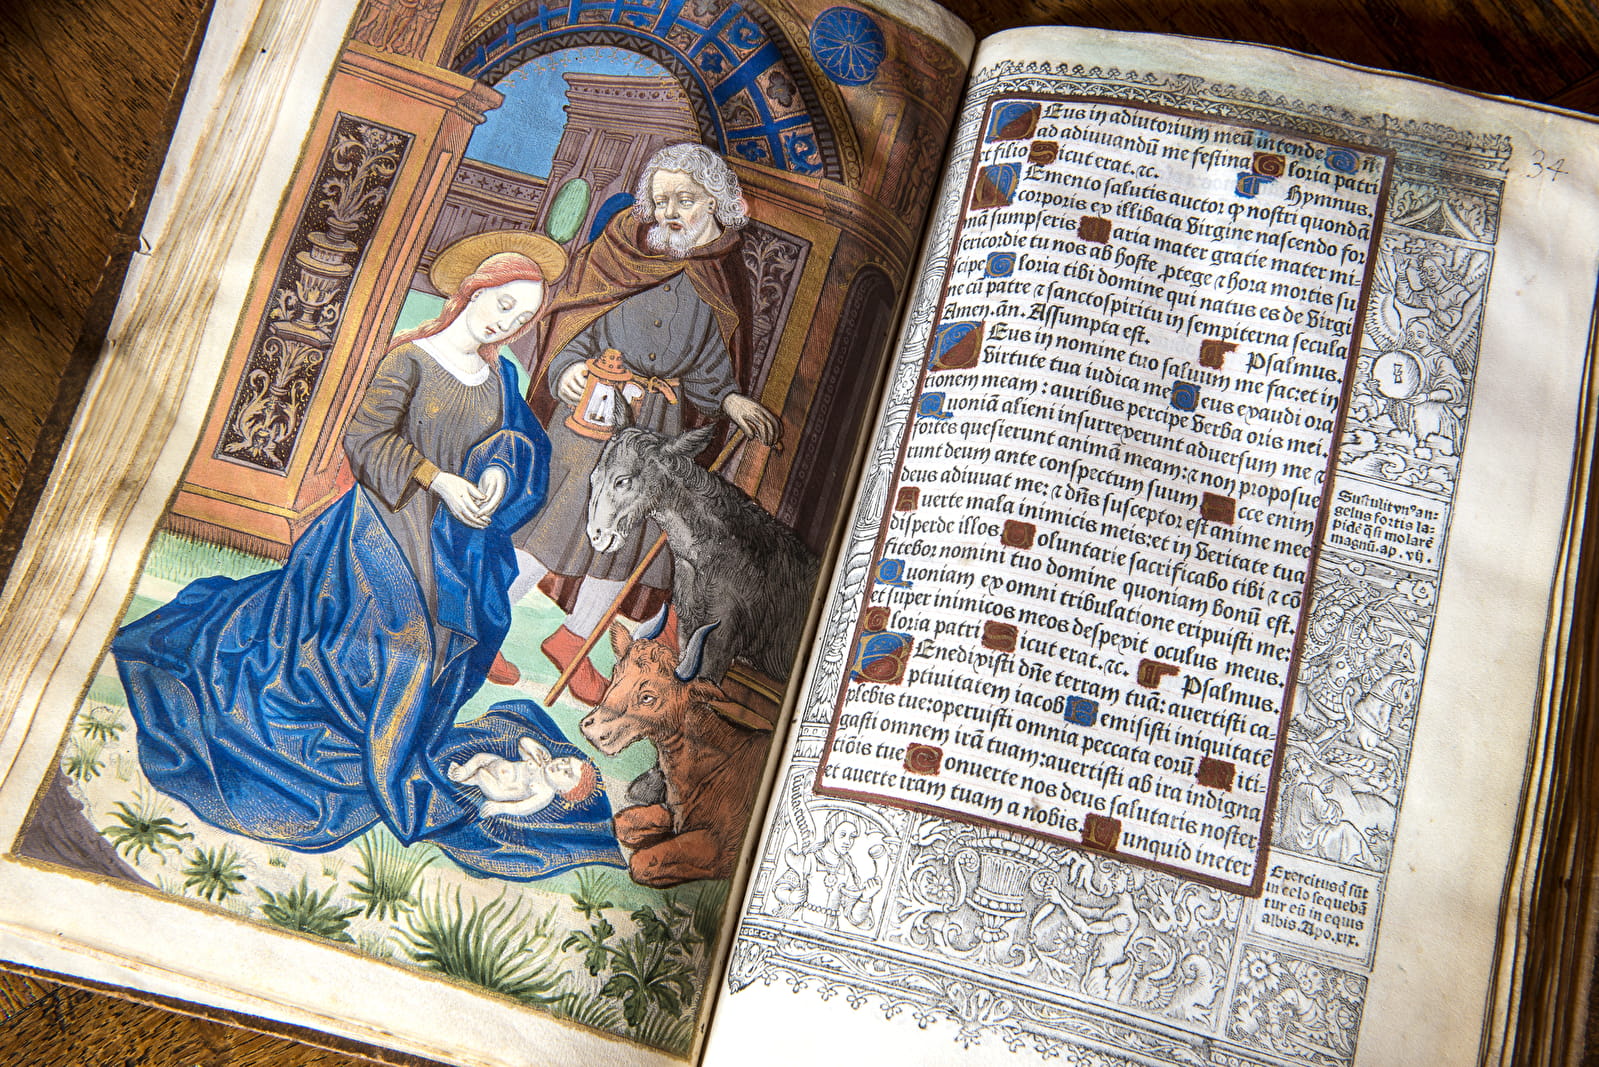 34
Deus in adiutorium meū intende Dn̄
ad adiuvandū me festina Gloria patri
et filio Sicut erat. ⁊c. Hymnus.
Memento salutis auctor ꝙ nostri quondā
corporis ex illibata virgine nascendo for
mā sumpseris Maria mater gratie mater mi-
sericordie tu nos ab hoste ꝓtege ⁊ hora mortis su
scipe Gloria tibi domine qui natus es de virgi
ne cū patre ⁊ sancto spiritu in sempiterna secula
Amen. an̄. Assumpta est. Psalmus.
Deus in nomine tuo salvum me fac: et in
virtute tua iudica me Deus exaudi ora
tionem meam: auribus percipe verba oris mei.
Quoniā alieni insurrexerunt adversum me ⁊
fortes quesierunt animā meam: ⁊ non proposue
runt deum ante conspectum suum Ecce enim
deus adiuvat me: ⁊ dn̄s susceptor est anime mee
Averte mala inimicis meis: et in veritate tua
disperde illos Voluntarie sacrificabo tibi ⁊ cō
fitebor nomini tuo domine quoniam bonū est.
Quoniam ex omni tribulatione eripuisti me:
et super inimicos meos despexit oculus meus.
Gloria patri Sicut erat. ⁊c. Psalmus.
Benedixisti dn̄e terram tuā: avertisti ca-
ptivitatem iacob Remisisti iniquitatē
plebis tue: operuisti omnia peccata eorū Miti-
gasti omnem irā tuam: avertisti ab ira indigna
tiōis tue Converte nos deus salutaris noster
et averte iram tuam a nobis. Nunquid in eter
Sustulit vn᾿ an-
gelus fortis la-
pidē q̄si molarē
magnū. ap.
Exercitusq̄ sūt
in celo sequebā
tur eū in equis
albis. Apo. xix.